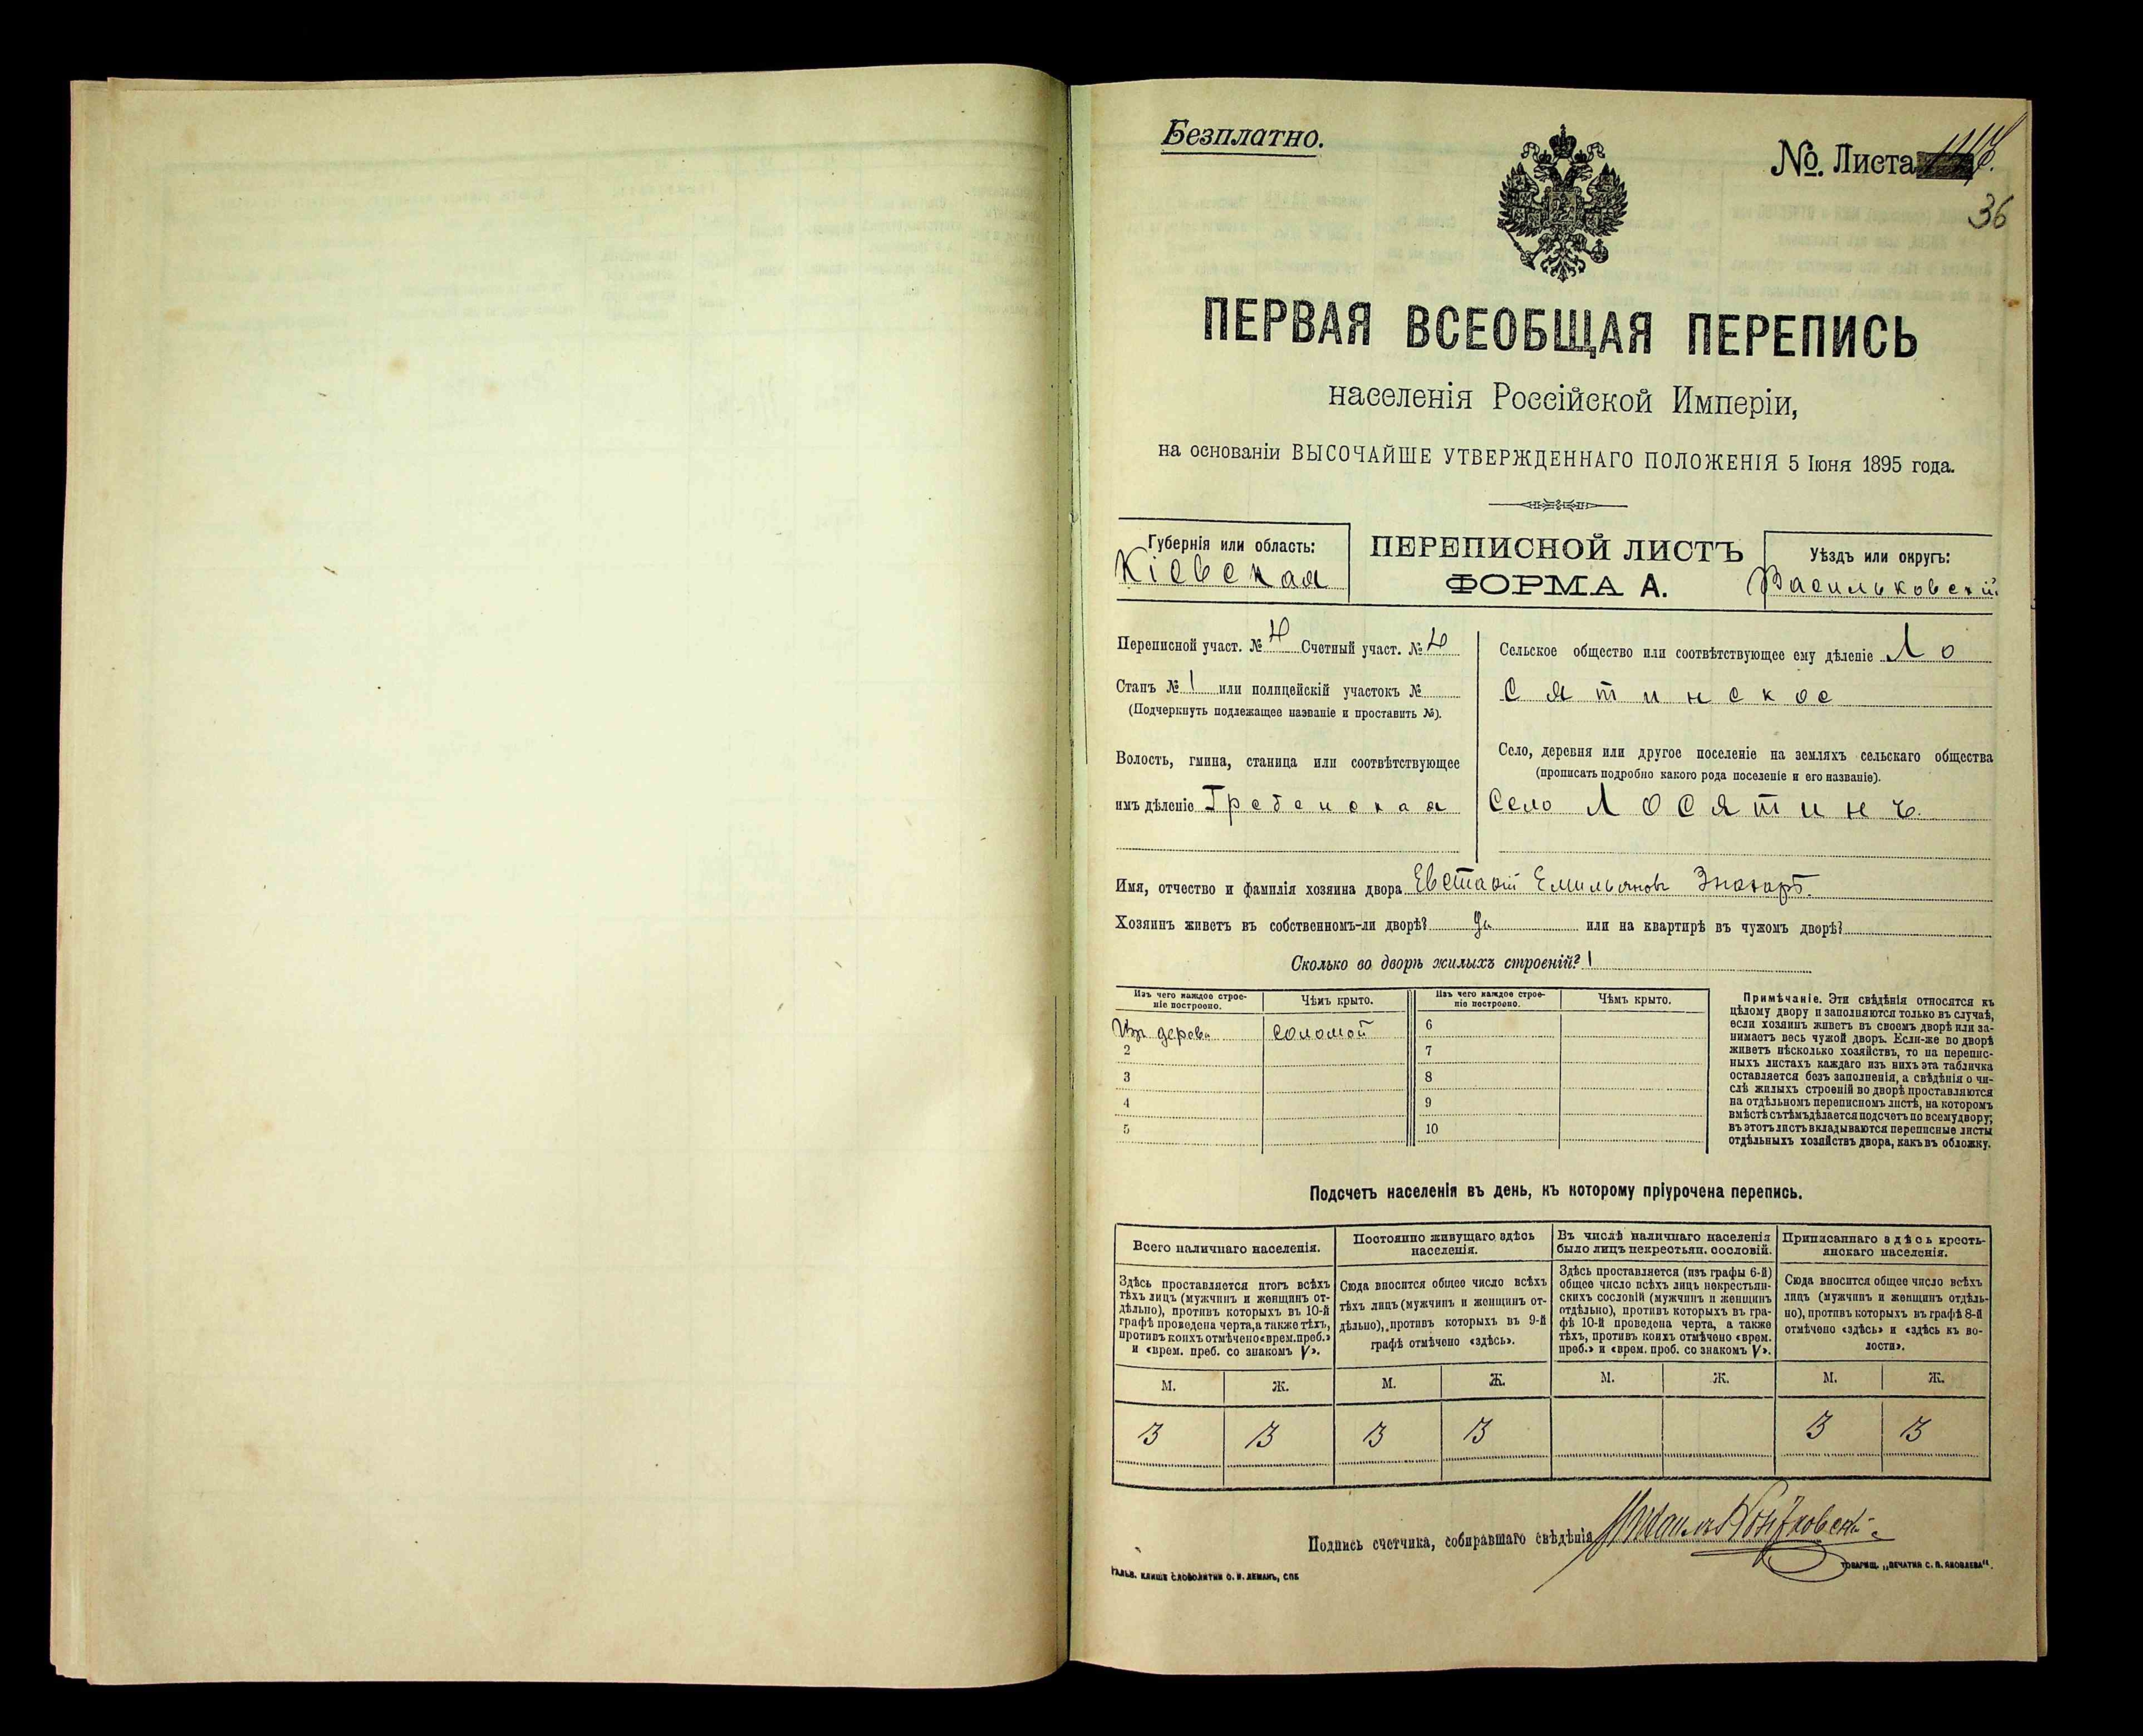 Безплатно.
№ Листа
36
ПЕРВАЯ ВСЕОБЩАЯ ПЕРЕПИСЬ
населенія Россійской Имперіи,
на основаніи ВЫСОЧАЙШЕ УТВЕРЖДЕННАГО ПОЛОЖЕНІЯ 5 Іюня 1895 года.
Губернія или область:
Кіевская
ПЕРЕПИСНОЙ ЛИСТЪ
ФОРМА А.
Уѣздъ или округъ:
Васильковскій
Переписной участ. № 4 Счетный участ. № 4
Станъ № 1 или полицейскій участокъ №
(Подчеркнуть подлежащее названіе и проставить №).
Волость, гмина, станица или соотвѣтствующее
имъ дѣленіе Гребенская
Сельское общество или соотвѣтствующее ему дѣленіе Ло
сятинское
Село, деревня или другое поселеніе на земляхъ сельскаго общества
(прописать подробно какого рода поселеніе и его названіе).
Село Лосятинъ.
Имя, отчество и фамилія хозяина двора Емильяновъ
Хозяинъ живетъ въ собственномъ-ли дворѣ? да или на квартирѣ въ чужомъ дворѣ?
Сколько во дворѣ жилыхъ строеній? 1
Изъ чего каждое строе-
ніе построено.
Чѣмъ крыто.
Изъ чего каждое строе-
ніе построено.
Чѣмъ крыто.
Изъ дерева соломой 6
2 7
3 8
4 9
5 10
Примѣчаніе. Эти свѣдѣнія относятся къ
цѣлому двору и заполняются только въ случаѣ,
если хозяинъ живетъ въ своемъ дворѣ или за-
нимаетъ весь чужой дворъ. Если-же во дворѣ
живетъ нѣсколько хозяйствъ, то на перепис-
ныхъ листахъ каждаго изъ нихъ эта табличка
оставляется безъ заполненія, а свѣдѣнія о чи-
слѣ жилыхъ строеній во дворѣ проставляются
на отдѣльномъ переписномъ листѣ, на которомъ
вмѣстѣ съ тѣмъ дѣлается подсчетъ по всему двору;
въ этотъ листъ вкладываются переписные листы
отдѣльныхъ хозяйствъ двора, какъ въ обложку.
Подсчетъ населенія въ день, къ которому пріурочена перепись.
Всего наличнаго населенія.
Здѣсь проставляется итогъ всѣхъ
тѣхъ лицъ (мужчинъ и женщинъ от-
дѣльно), противъ которыхъ въ 10-й
графѣ проведена черта, а также тѣхъ,
противъ коихъ отмѣчено «врем. преб.»
и «врем. преб. со знакомъ V».
Постоянно живущаго здѣсь
населенія.
Сюда вносится общее число всѣхъ
тѣхъ лицъ (мужчинъ и женщинъ от-
дѣльно), противъ которыхъ въ 9-й
графѣ отмѣчено «здѣсь».
Въ числѣ наличнаго населенія
было лицъ некрестьян. сословій.
Здѣсь проставляется (изъ графы 6-й)
общее число всѣхъ лицъ некрестьян-
скихъ сословій (мужчинъ и женщинъ
отдѣльно), противъ которыхъ въ гра-
фѣ 10-й проведена черта, а также
тѣхъ, противъ коихъ отмѣчено «врем.
преб.» и «врем. преб. со знакомъ V».
Приписаннаго здѣсь кресть-
янскаго населенія.
Сюда вносится общее число всѣхъ
лицъ (мужчинъ и женщинъ отдѣль-
но), противъ которыхъ въ графѣ 8-й
отмѣчено «здѣсь» и «здѣсь къ во-
лости».
М. Ж. М. Ж. М. Ж. М. Ж.
3 3 3 3 3 3
Подпись счетчика, собиравшаго свѣдѣнія
ГАЛЬВ. КЛИШЕ СЛОВОЛИТНИ О. И. ЛЕМАНЪ, СПБ
ТОВАРИЩ. „ПЕЧАТНЯ С. П. ЯКОВЛЕВА“.